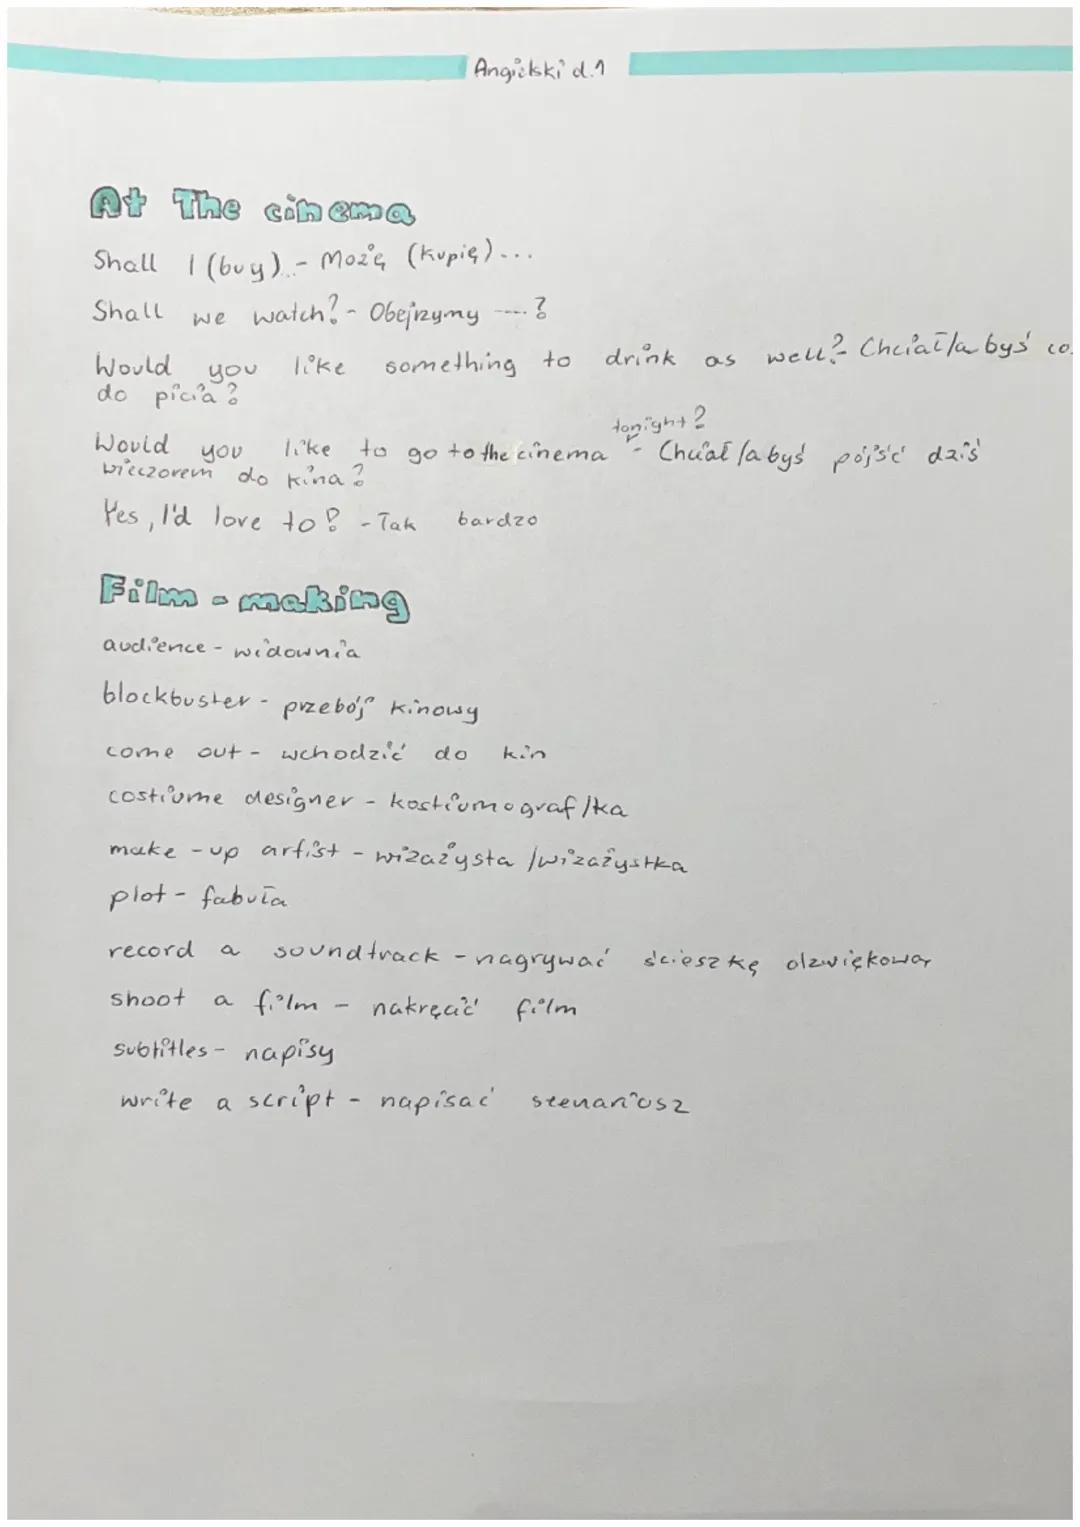 Angielski d.1
At The cinema
Shall I (buy)..- Możę (kupię)...
Shall we watch? - Obejrzymy ----?
tonight?
Would you like something to drink as well? - Chciał/a byś co
do picia?
Would you like to go to the cinema - Chciał/abyś pójść dziś
wieczorem do kina?
Yes, I'd love to? - Tak bardzo
Film - making
audience - widownia
blockbuster - przebój kinowy
come out - wchodzić do kin
costiume designer - kostiumograf/ka
make-up artist - wizażysta /wizażystka
plot - fabuła
record a soundtrack - nagrywać ścieszkę dzwiękową
shoot a film - nakręcić film
subtitles - napisy
write a script - napisać scenariosz